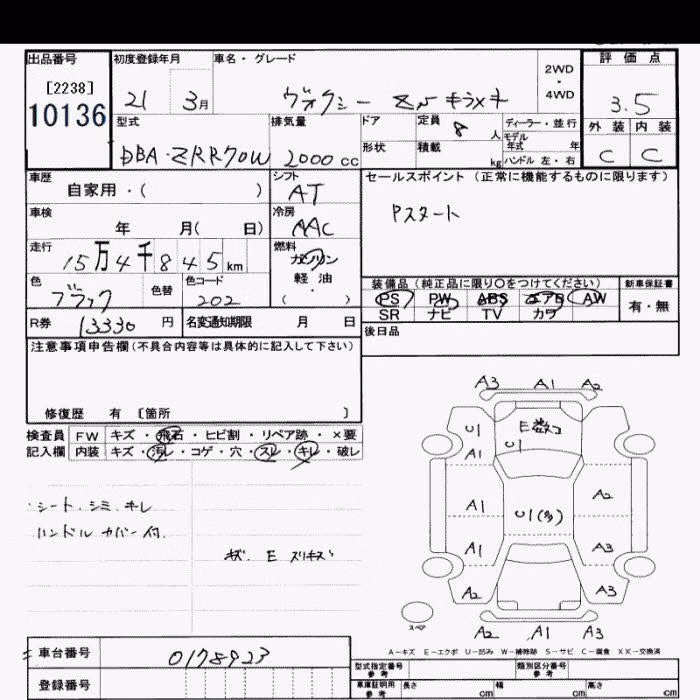 出品番号 初度登録年月 車名・グレード 2WD・4WD 評価点
[2238]
10136
21 3月 ヴォクシー ZS キラメキ 3.5
型式 排気量 ドア 定員 8 人 ディーラー・並行 外装 内装
DBA-ZRR70W 2000 cc 形状 積載 kg モデル年式 年 ハンドル 左・右 C C
車歴 自家用・( ) シフト AT
セールスポイント (正常に機能するものに限ります)
Pスタート
車検 年 月( 日) 冷房 AAC
走行 15万4千845km 燃料 ガソリン 軽油 ( ・ )
色 ブラック 色替 色コード 202
装備品 (純正品に限り○をつけてください) 新車保証書
PS PW ABS エアB AW 有・無
SR ナビ TV カワ
R券 13330 円 名変通知期限 月 日
後日品
注意事項申告欄(不具合内容等は具体的に記入して下さい)
修復歴 有 [箇所 ]
検査員 FW キズ・飛石・ヒビ割・リペア跡・×要
記入欄 内装 キズ・汚レ・コゲ・穴・スレ・キレ・破レ
シート、シミ、キレ
ハンドルカバー付.
キズ. E スリキズ
A3 A1 A2
U1 E数コ
U1
A1
A1 U1(多) A2
A1 A3
A2 A3
スペア A2 A1 A3
A-キズ E-エクボ U-凹み W-補修跡 S-サビ C-腐食 XX-交換済
車台番号 0178923
登録番号
型式指定番号 参考 類別区分番号 参考
車庫証明用 参考 長さ cm 幅 cm 高さ cm